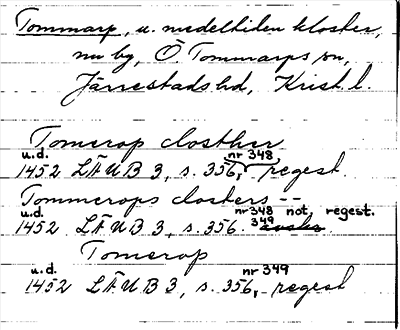 Tommarp, u. medeltiden kloster,
nu by, Ö. Tommarps sn,
Järrestads hd, Krist. l.
Tomerop closther
u.d. nr 348
1452 LÄUB 3, s. 356, regest
Tommerops closters --
u.d. nr 348 not regest.
1452 LÄUB 3, s. 356. 349
Tomerop
u.d. nr 349
1452 LÄUB 3, s. 356, regest